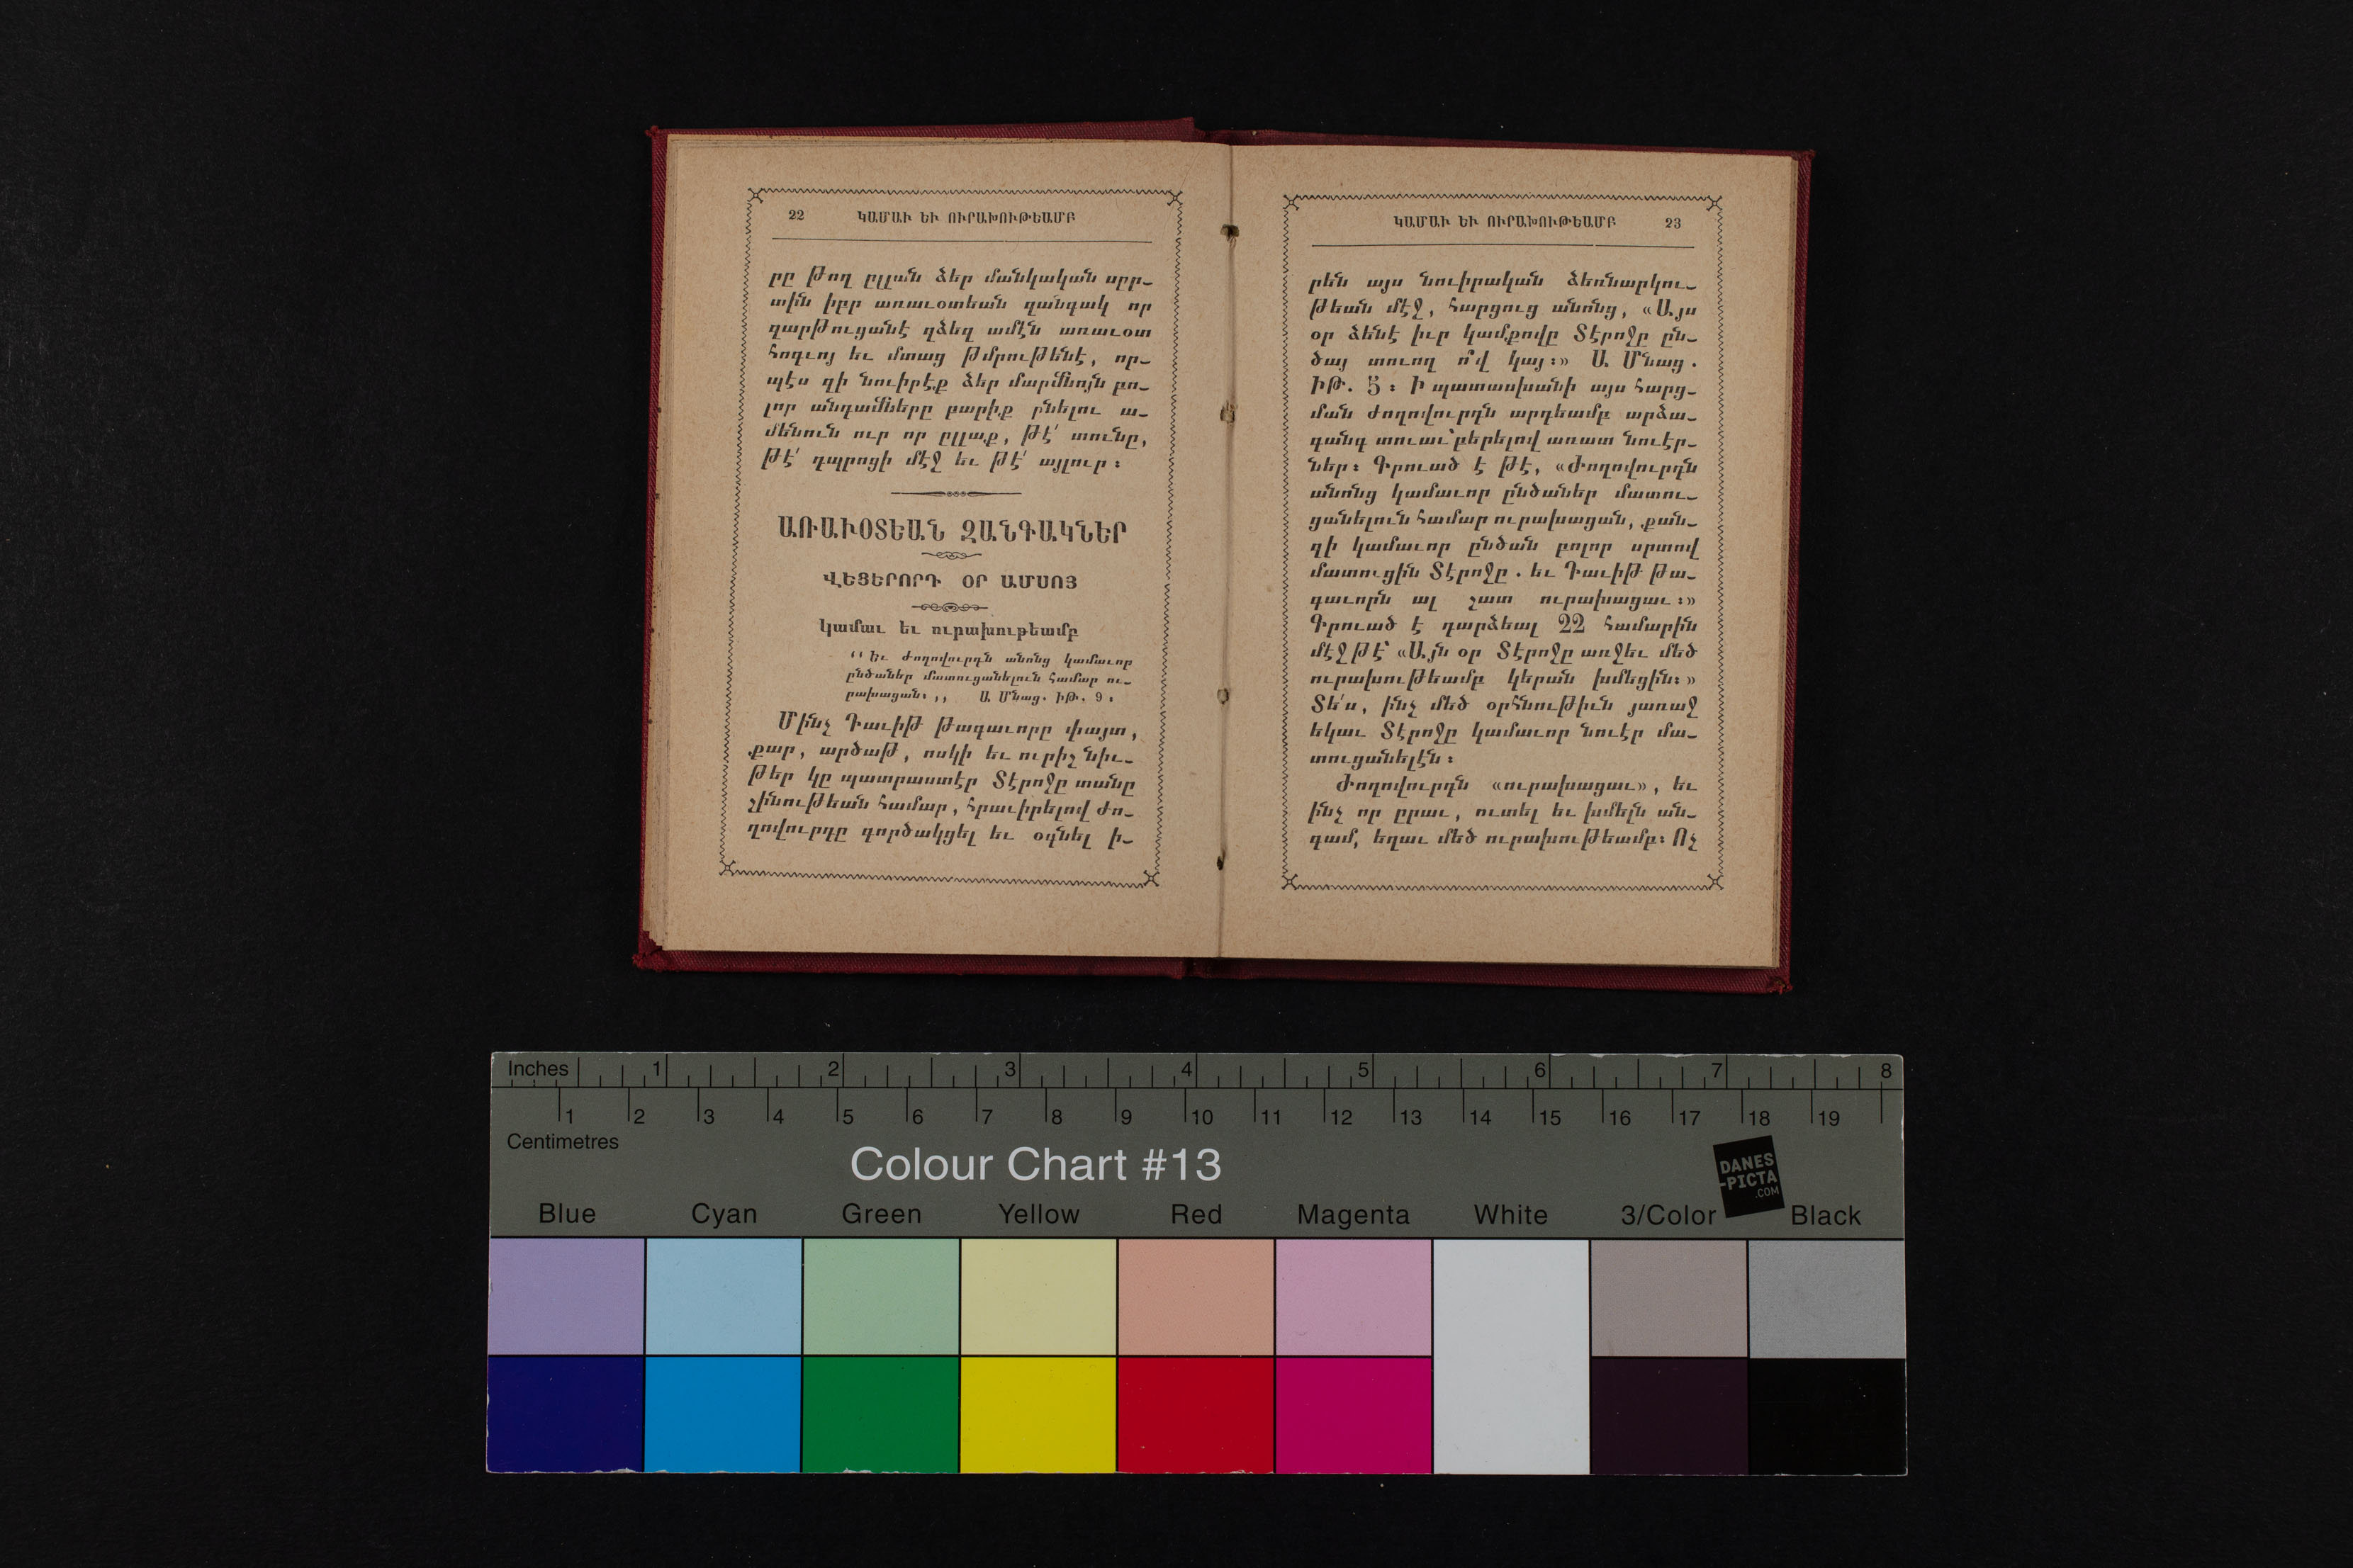 22 ԿԱՄԱՒ ԵՒ ՈՒՐԱԽՈՒԹԵԱՄԲ
րը թող ըլլան ձեր մանկական սըր-
տին իբր առաւօտեան զանգակ որ
զարթուցանէ զձեզ ամէն առաւօտ
հոգւոյ եւ մտաց թմրութենէ, որ-
պէս զի նուիրէք ձեր մարմնոյն բո-
լոր անդամները բարիք ընելու ա-
մենուն ուր որ ըլլաք, թէ՛ տունը,
թէ՛ դպրոցի մէջ եւ թէ՛ այլուր։
ԱՌԱՒՕՏԵԱՆ ԶԱՆԳԱԿՆԵՐ
ՎԵՑԵՐՈՐԴ ՕՐ ԱՄՍՈՅ
Կամաւ եւ ուրախութեամբ
‘‘Եւ ժողովուրդն անոնց կամաւոր
ընծաներ մատուցանելուն համար ու-
րախացան։,, Ա. Մնաց. ԻԹ. 9։
Մինչ Դաւիթ Թագաւորը փայտ,
քար, արծաթ, ոսկի եւ ուրիշ նիւ-
թեր կը պատրաստէր Տէրոջը տանը
շինութեան համար, հրաւիրելով ժո-
ղովուրդը գործակցել եւ օգնել ի-
ԿԱՄԱՒ ԵՒ ՈՒՐԱԽՈՒԹԵԱՄԲ 23
րեն այս նուիրական ձեռնարկու-
թեան մէջ, հարցուց անոնց, «Այս
օր ձենէ իւր կամքովը Տէրոջը ըն-
ծայ տուող ո՞վ կայ։» Ա. Մնաց.
ԻԹ. 5։ Ի պատասխանի այս հարց-
ման ժողովուրդն արդեամբ արձա-
գանգ տուաւ՝ բերելով առատ նուէր-
ներ։ Գրուած է թէ, «Ժողովուրդն
անոնց կամաւոր ընծաներ մատու-
ցանելուն համար ուրախացան, քան-
զի կամաւոր ընծան բոլոր սրտով
մատուցին Տէրոջը. եւ Դաւիթ թա-
գաւորն ալ շատ ուրախացաւ։»
Գրուած է դարձեալ 22 համարին
մէջ թէ՝ «Այն օր Տէրոջը առջեւ մեծ
ուրախութեամբ կերան խմեցին։»
Տե՛ս, ինչ մեծ օրհնութիւն յառաջ
եկաւ Տէրոջը կամաւոր նուէր մա-
տուցանելէն։
Ժողովուրդն «ուրախացաւ», եւ
ինչ որ ըրաւ, ուտել եւ խմելն ան-
գամ, եղաւ մեծ ուրախութեամբ։ Ոչ
Inches 1 2 3 4 5 6 7 8
1 2 3 4 5 6 7 8 9 10 11 12 13 14 15 16 17 18 19
Centimetres
Colour Chart #13
DANES
-PICTA
.COM
Blue Cyan Green Yellow Red Magenta White 3/Color Black